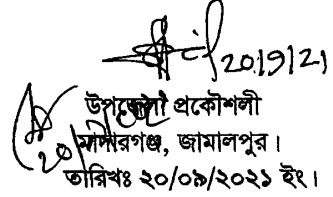 20/9/21
উপজেলা প্রকৌশলী
মাদারগঞ্জ, জামালপুর।
তারিখঃ ২০/০৯/২০২১ ইং।